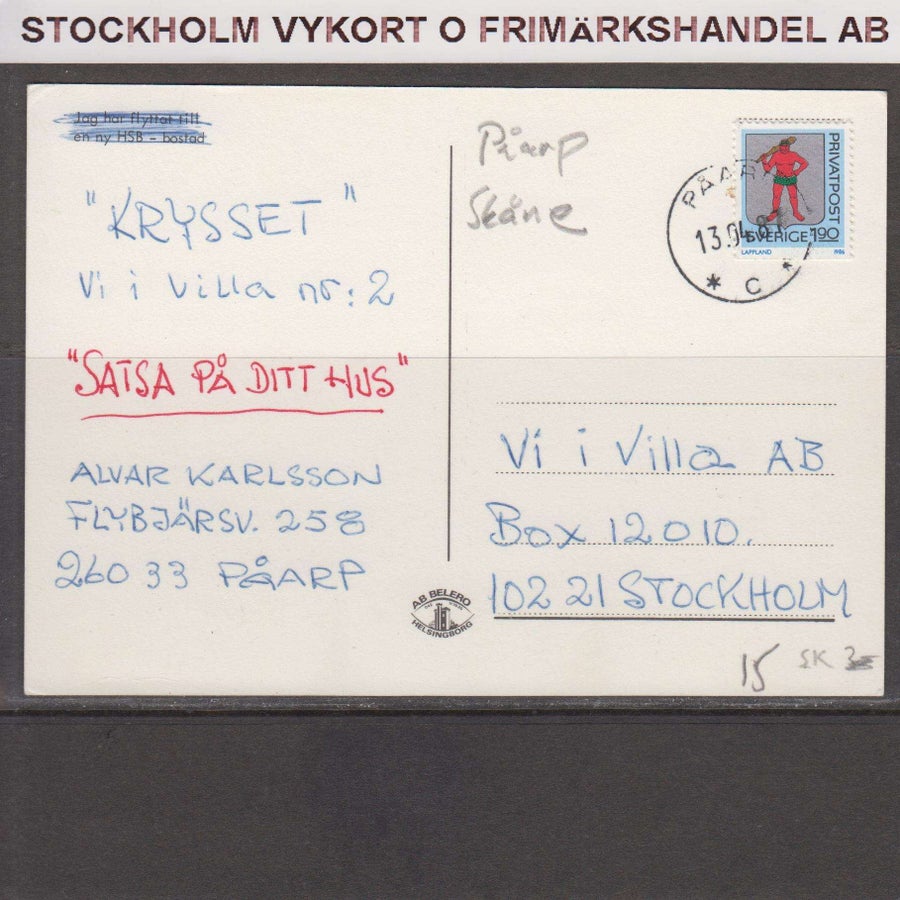 STOCKHOLM VYKORT O FRIMÄRKSHANDEL AB
Jag har flyttat till
en ny HSB - bostad
"KRYSSET"
Vi i Villa nr: 2
"SATSA PÅ DITT HUS"
ALVAR KARLSSON
FLYBJÄRSV. 258
260 33 PÅARP
AB BELERO
HELSINGBORG
Påarp
Skåne
PRIVATPOST
SVERIGE 1.90
LAPPLAND 1986
PÅARP
13.04.87
* C *
Vi i Villa AB
Box 12010.
102 21 STOCKHOLM
15 SK